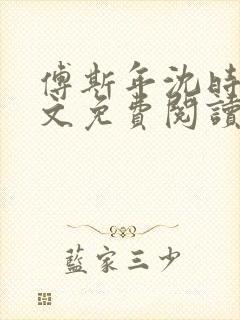 傅斯年沈時
文免費閱讀
藍家三少